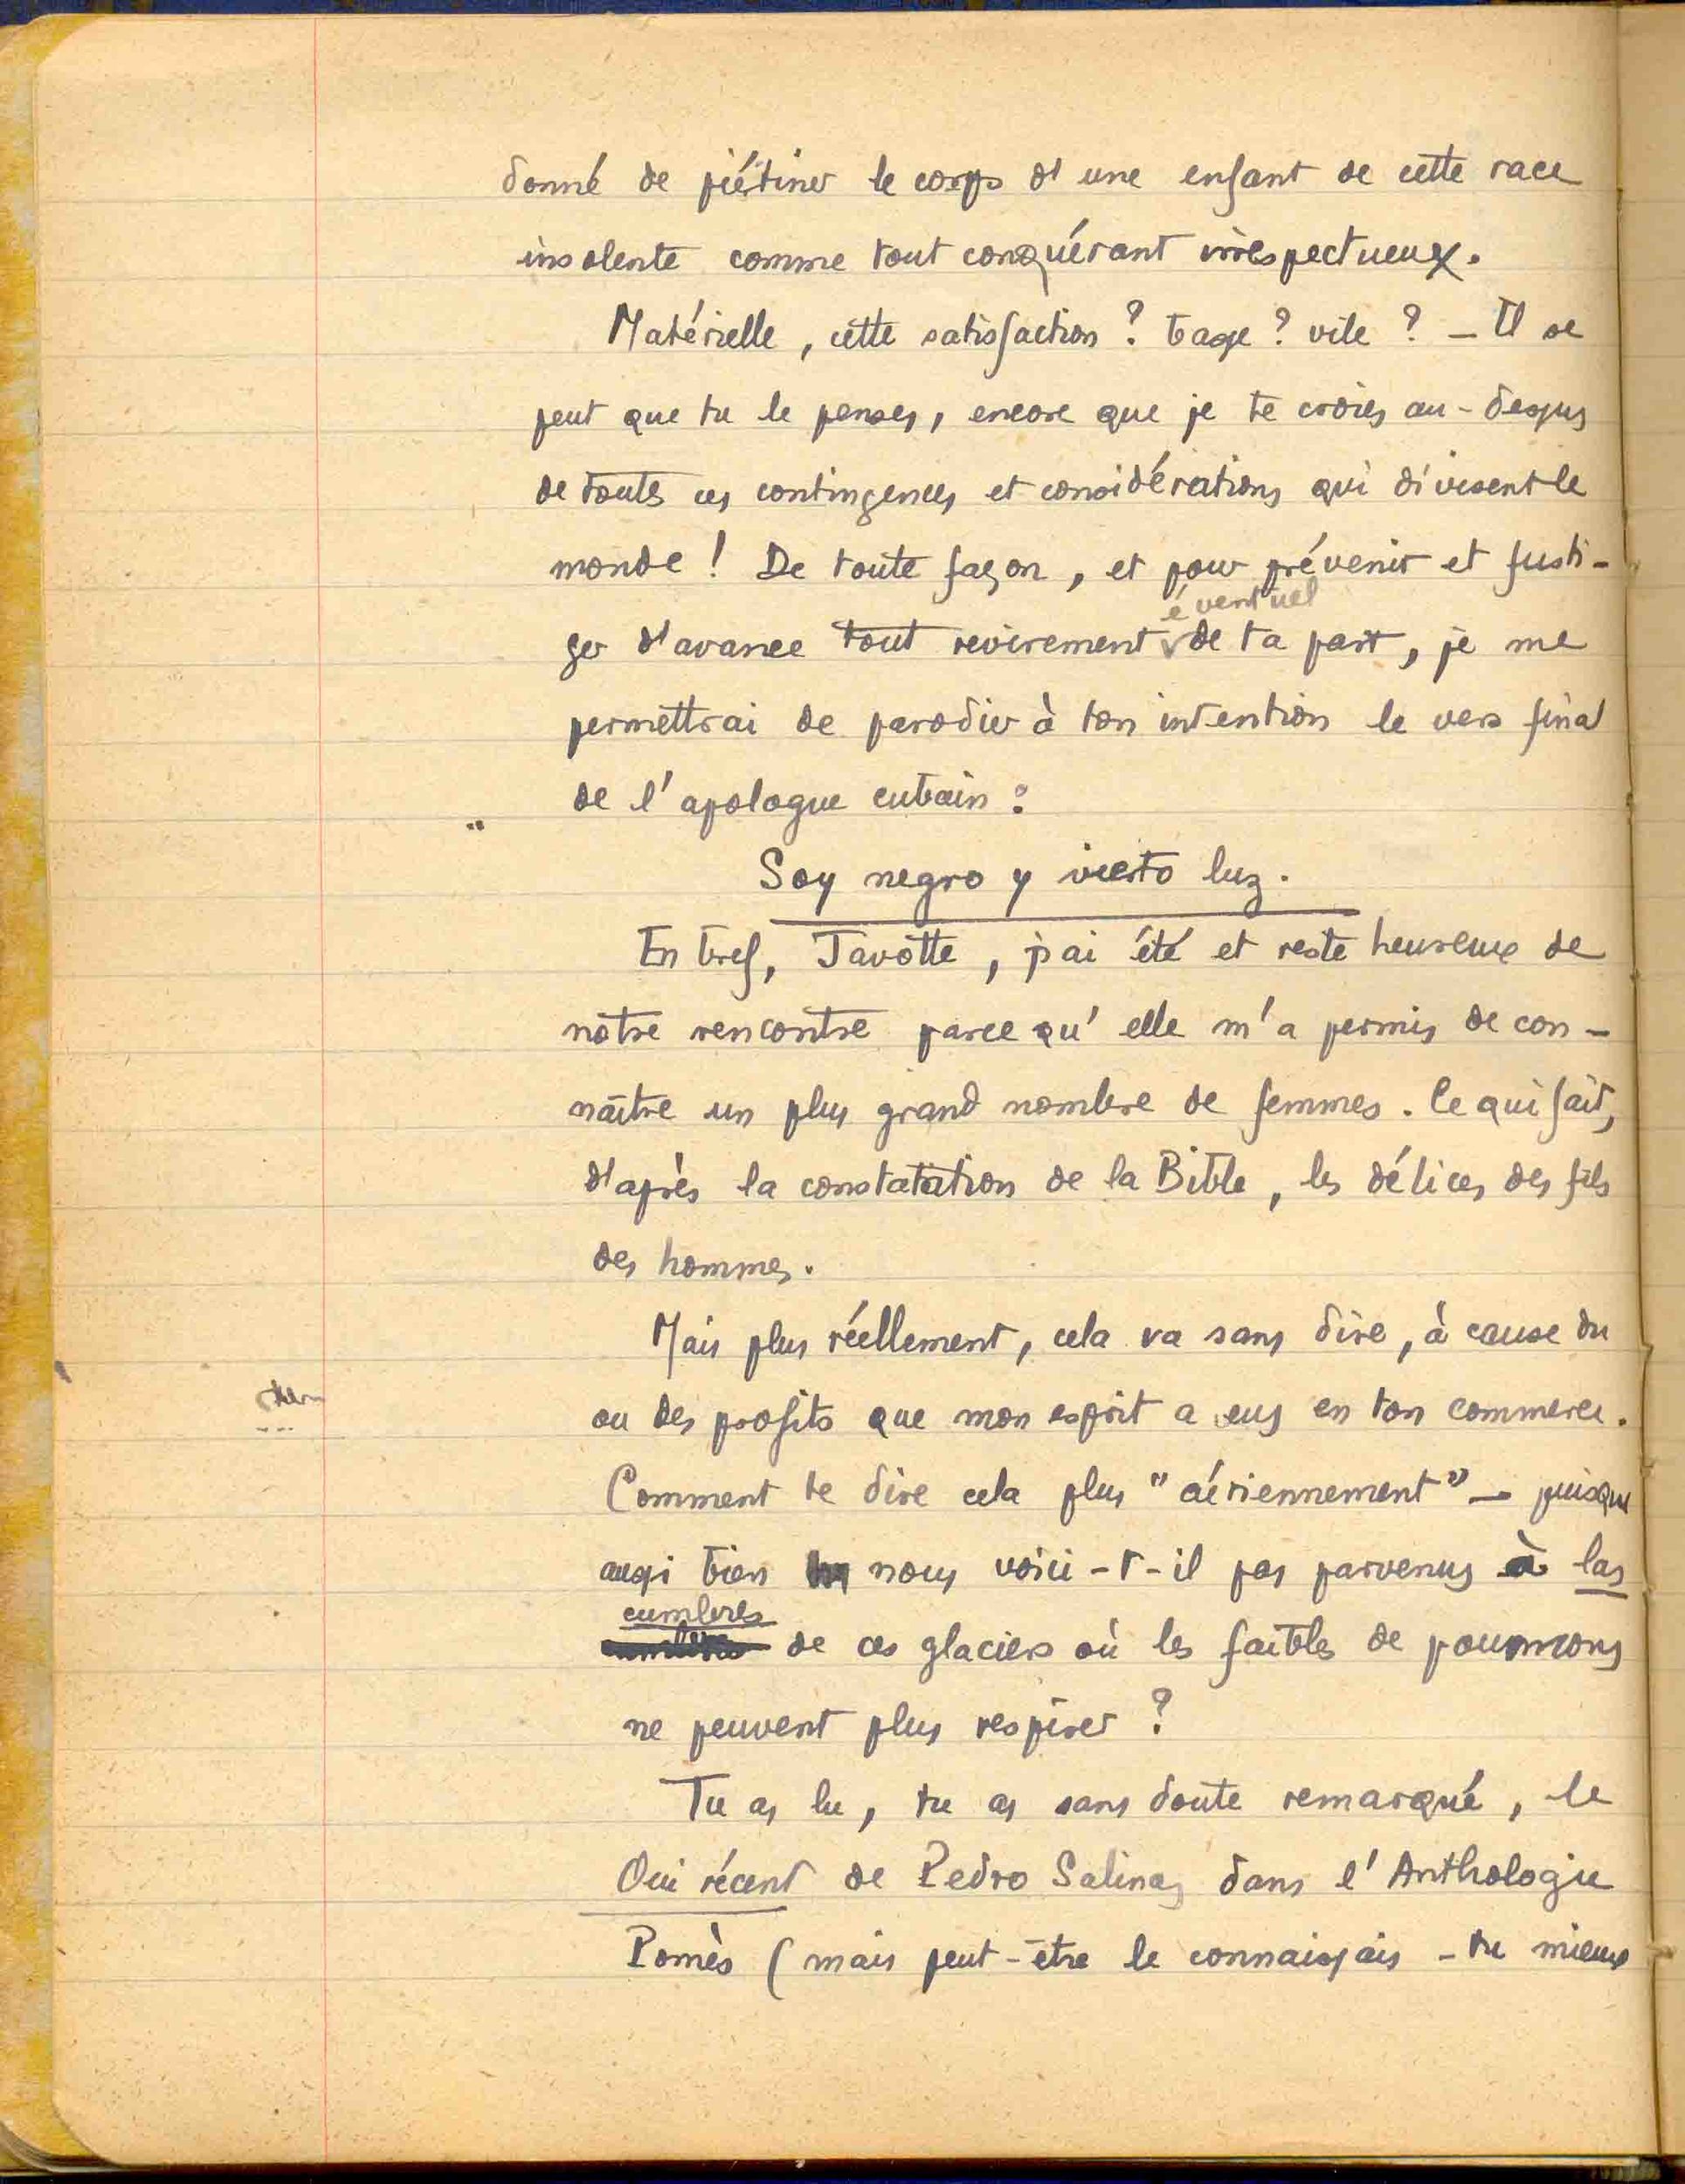 donné de piétiner le corps d'une enfant de cette race
insolente comme tout conquérant irrespectueux.
Matérielle, cette satisfaction ? basse ? vile ? — Il se
peut que tu le penses, encore que je te croies au-dessus
de toutes ces contingences et considérations qui divisent le
monde ! De toute façon, et pour prévenir et fusti-
ger d'avance tout revirement éventuel de ta part, je me
permettrai de parodier à ton intention le vers final
de l'apologue cubain :
Soy negro y vierto luz.
En bref, Javotte, j'ai été et reste heureux de
notre rencontre parce qu'elle m'a permis de con-
naître un plus grand nombre de femmes. Ce qui fait,
d'après la constatation de la Bible, les délices des fils
des hommes.
Mais plus réellement, cela va sans dire, à cause du
ou des profits que mon esprit a eus en ton commerce.
Comment te dire cela plus "aériennement" — puisque
aussi bien nous voici-t-il pas parvenus à las
cumbres de ces glaciers où les faibles de poumons
ne peuvent plus respirer ?
Tu as lu, tu as sans doute remarqué, le
Oui récent de Pedro Salinas dans l'Anthologie
Pomès (mais peut-être le connaissais-tu mieux